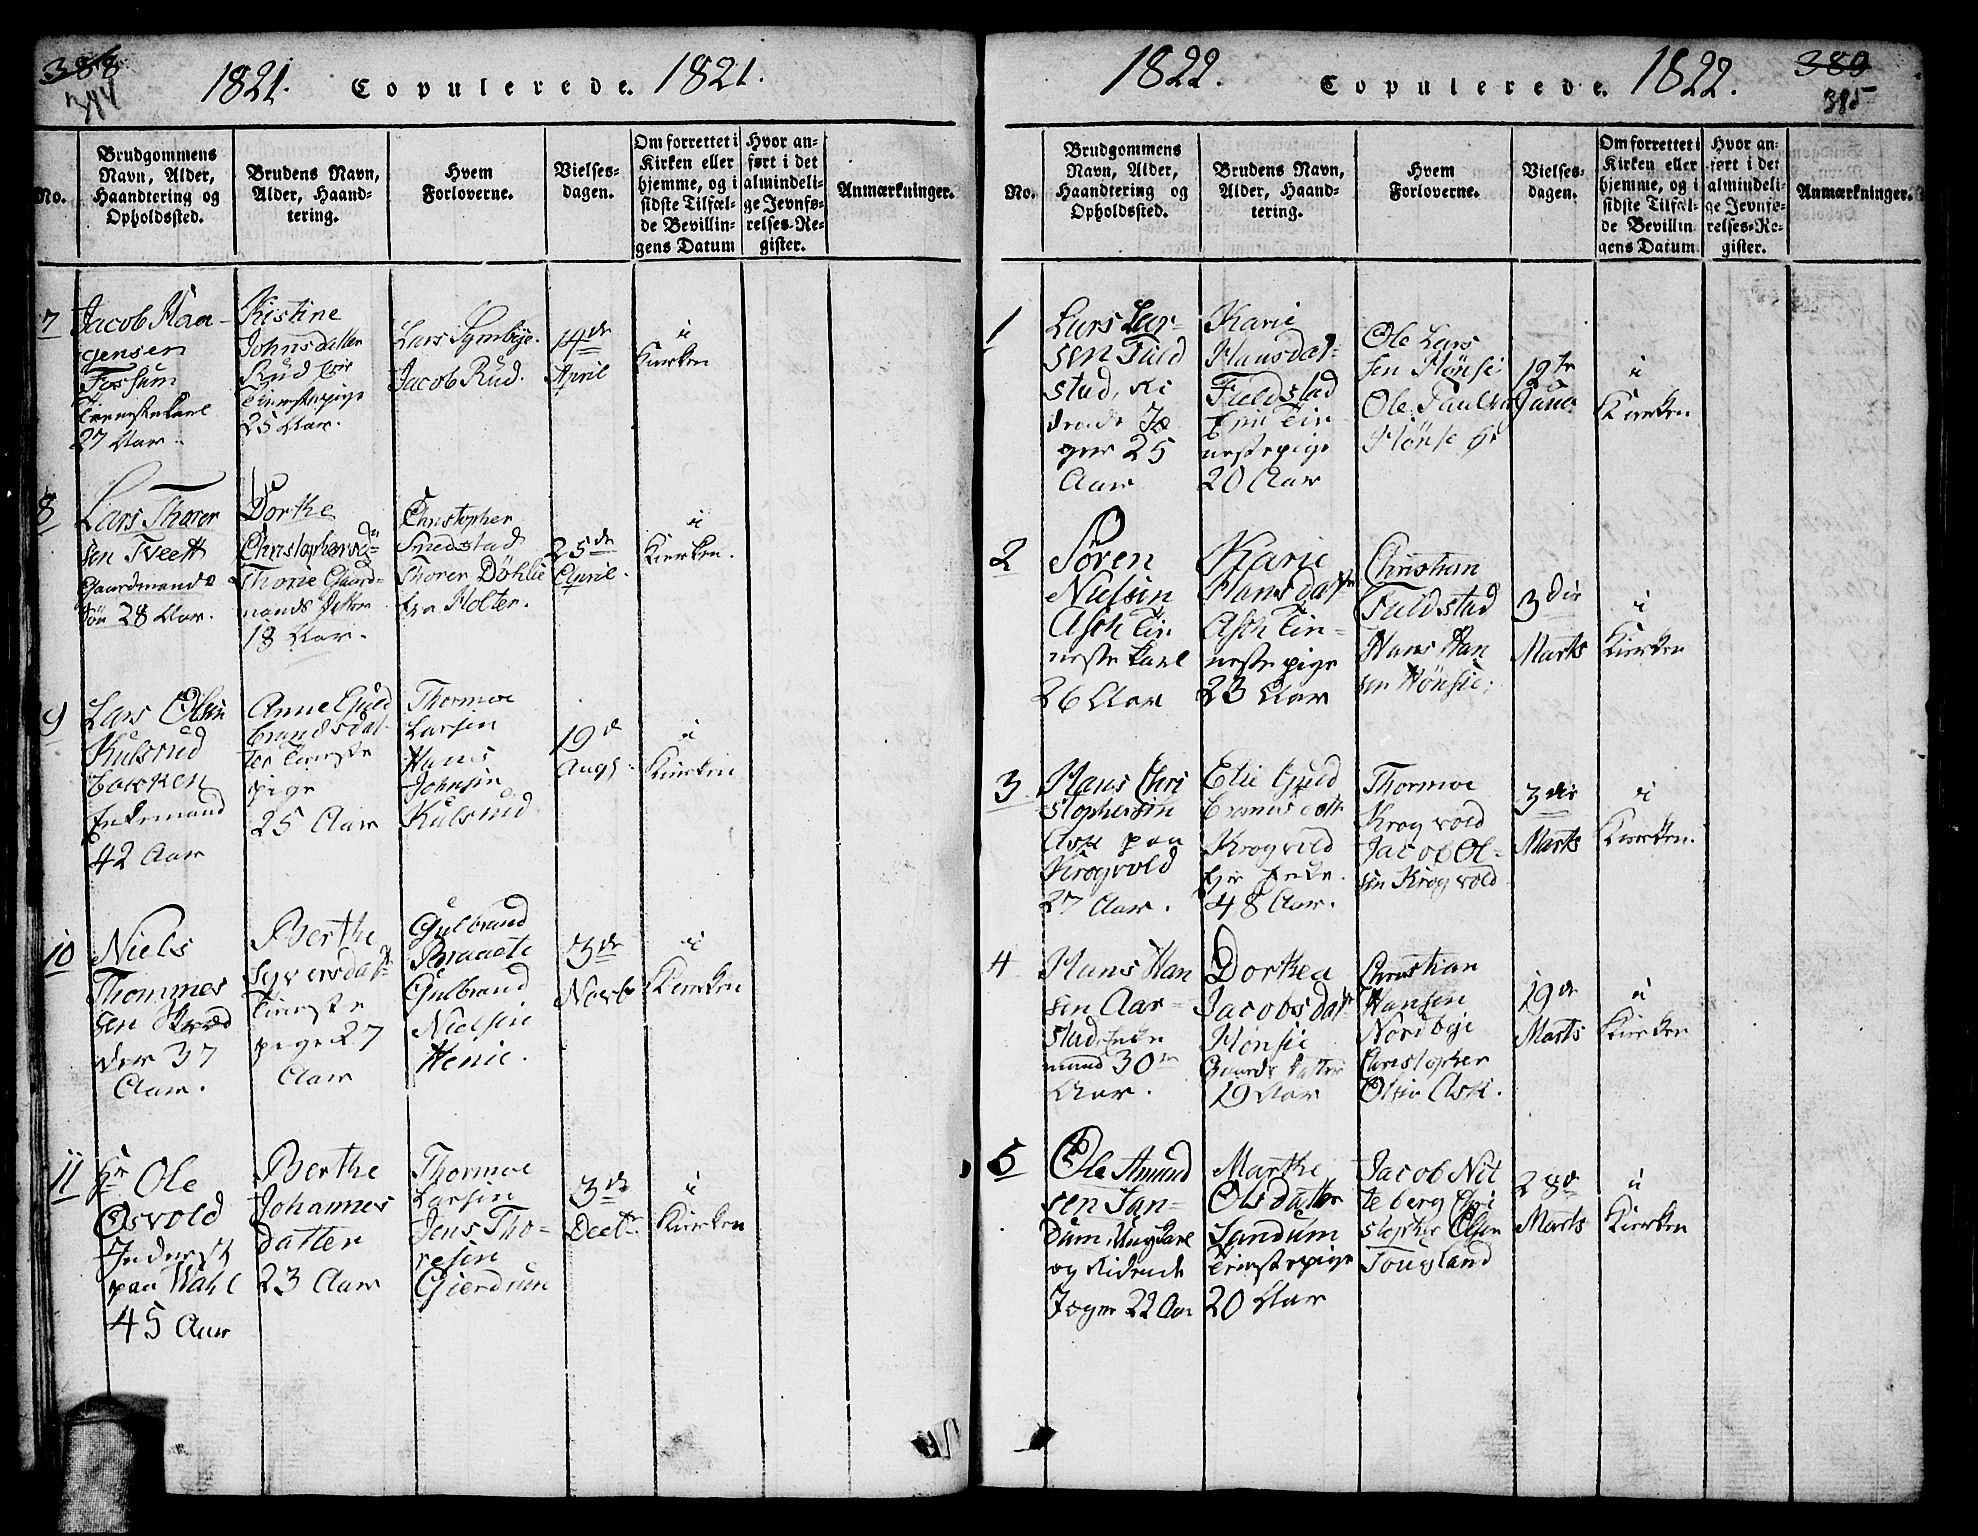 388
384
1821. Copulerede. 1821.
No.
Brudgommens
Navn, Alder,
Haandtering og
Opholdssted.
Brudens Navn,
Alder, Haand-
tering.
Hvem
Forloverne.
Vielses-
dagen.
Om forrettet i
Kirken eller
hjemme, og i
sidste Tilfæl-
de Bevillin-
gens Datum
Hvor an-
ført i det
almindeli-
ge Jevnfø-
relses-Re-
gister.
Anmærkninger.
7
Jacob Haa-
gensen
Fossum
Tieneste karl
27 Aar.
Kistine
Johnsdatter
Rud
Tienestepige
25 Aar.
Lars Gymbye.
Jacob Rud.
14de
April
i
Kierken
8
Lars Thorer
sen Tveett
Gaardmands
søn 28 Aar.
Dorthe
Christophersd
Thorie Gaard-
mands datter
18 Aar.
Christopher
Smedstad
Thorer Döhlie
fra Holter.
25de
April.
i
Kierken.
9
Lars Olsen
Kulsrud
backen
Enkemand
42 Aar
Anne Guld
brandsdat-
ter Tieneste
pige
25 Aar
Thormoe
Larsen
Hans
Johnsen
Kulsrud.
19d
Aug.
i
Kierken
10
Niels
Thommes
sen
37
Aar.
Berthe
Syversdatt
Tieneste
pige 27
Aar
Gulbrand
Braaete
Gulbrand
Nielsen
Henie.
3de
Novbr
i
Kierken
11
Kr Ole
Osvold
Inderst
paa Wahl
45 Aar
Berthe
Johannes
datter
23 Aar
Thormoe
Larsen
Jens Tho-
resen
Gjerdrum
3de
Decbr
i
Kierken
1822. Copulerede. 1822.
389
385
No.
Brudgommens
Navn, Alder,
Haandtering og
Opholdssted.
Brudens Navn,
Alder, Haand-
tering.
Hvem
Forloverne.
Vielses-
dagen.
Om forrettet i
Kirken eller
hjemme, og i
sidste Tilfæl-
de Bevillin-
gens Datum.
Hvor an-
ført i det
almindeli-
ge Jevnfø-
relses-Re-
gister.
Anmærkninger.
1
Lars Lar-
sen Fuld
stad, Ri
dende Jæ
ger 25
Aar
Karie
Hansdat-
Fieldstad
Tie-
nestepige
20 Aar
Ole Lars
sen Hönsie
Ole Paulsen
Hönsie
19de
Janr
i
Kierken
2
Sören
Nielsen
Ask Tie
neste karl
26 Aar
Karie
Hansdatter
Ask Tie-
neste pige
23 Aar
Christian
Fuldstad
Hans Han
sen Hönsie.
3die
Marts
i
Kierken
3
Hans Chri
stophersen
Ask paa
Krogvold
27 Aar.
Elie Guld
brandsdatter
Krogvold
Enke.
48 Aar.
Thormoe
Krogvold
Jacob Ol-
sen Krogvold
3die
Marts
i
Kierken.
4
Hans Han
sen Aar-
stad Enke
mand 30
Aar.
Dorthea
Jacobsdatt
Hönsie
Gaards datter
19 Aar
Christian
Hansen
Nordbye
Christopher
Olsen Ask.
19de
Marts
i
Kierken
5
Ole Amund
sen San-
dum Ungkarl
og Ridende
Jæger 22 Aar
Marthe
Olsdatter
Sandum
Tienestepige
20 Aar
Jacob Nit
teberg Chri
stopher Olsen
Tougland
28de
Marts
i
Kierken